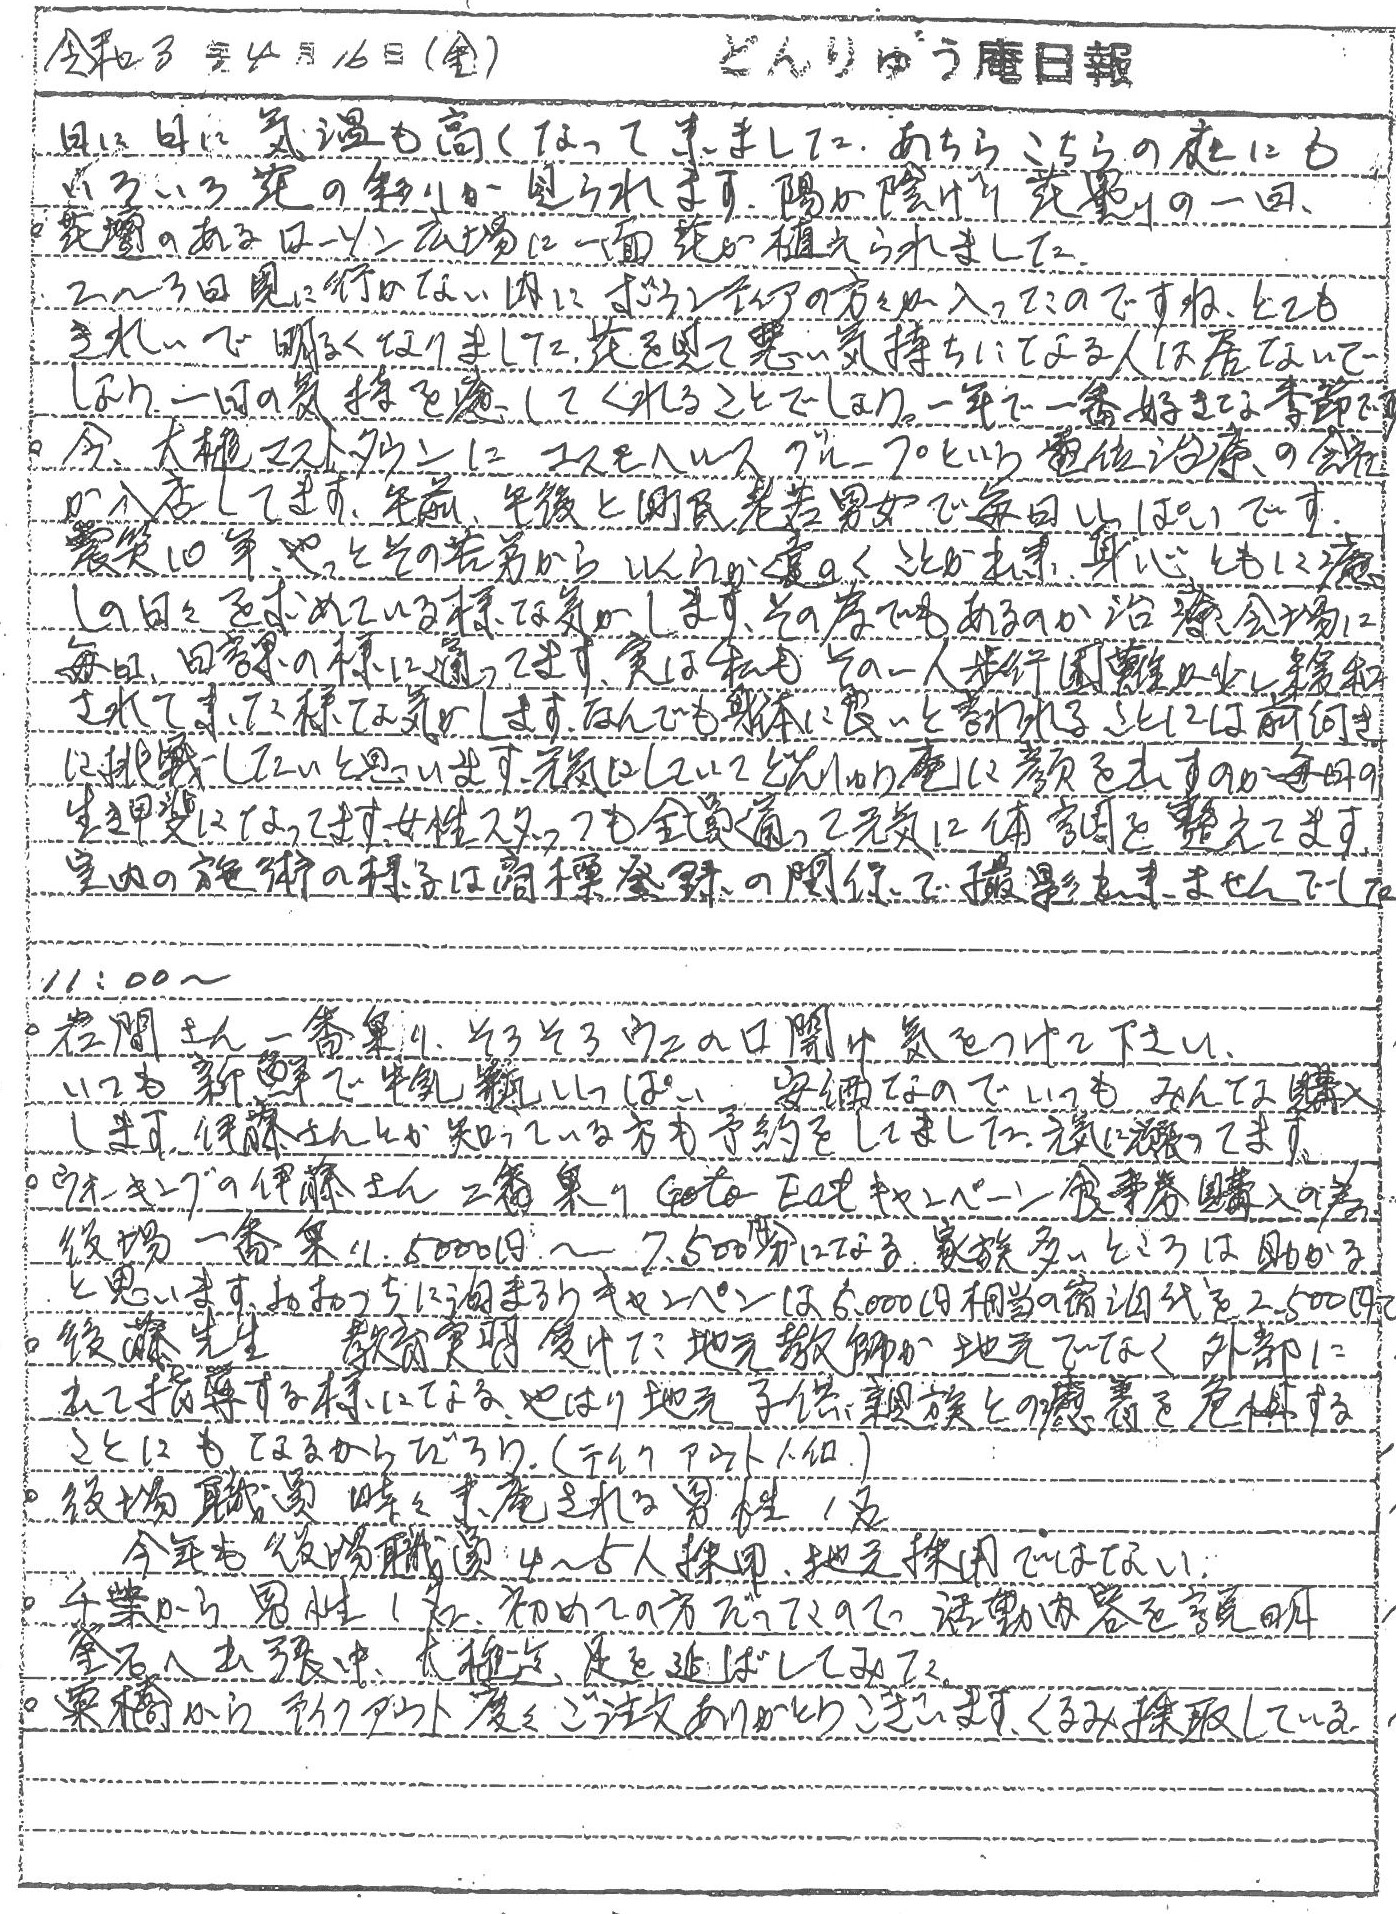 令和3年4月16日(金) どんりゅう庵日報
日に日に気温も高くなって来ました。あちらこちらの庭にも
いろいろ花の彩りが見られます。陽が陰げり花曇りの一日、
。花壇のあるローソン広場に一面花が植えられました。
2〜3日見に行かない内にボランティアの方々が入ってたのですね、とても
きれいで明るくなりました。花を見て悪い気持ちになる人は居ないで
しょう。一日の気持を癒してくれることでしょう。一年で一番好きな季節です
。今、大槌マストタウンにコスモヘルスグループという電位治療の会社
が入店してます、午前、午後と町民老若男女で毎日いっぱいです。
震災10年、やっとその苦労からいくらか遠のくことが出来、身心ともに癒
しの日々を求めている様な気がします、その為でもあるのか治療会場に
毎日、日課の様に通ってます、実は私もその一人歩行困難が少し緩和
されて来た様な気がします、なんでも身体に良いと言われることには前向き
に挑戦したいと思います、元気にしていてどんりゅう庵に顔を出すのが毎日の
生き甲斐になってます女性スタッフも全員通って元気に体調を整えてます。
室内の施術の様子は商標登録の関係で撮影出来ませんでした
11:00〜
。岩間さん一番乗り、そろそろウニの口開け気をつけて下さい、
いても新鮮で牛乳瓶いっぱい 安価なのでいつもみんな購入
します、伊藤さんとか知っている方も予約をしてました、元気に張ってます。
。ウォーキングの伊藤さん二番乗り Goto Eatキャンペーン食事券購入の為
役場一番乗り、5000円〜7,500円分になる、家族多いところは助かる
と思います、おおつちに泊まろうキャンペンは5,000円相当の宿泊代を2,500円で
。後藤先生 教育実習受けた地元教師が地元でなく外部に
出て指導する様になる、やはり地元子供、親族との を危惧する
ことにもなるからだろう。(テイクアウト1ヶ.)
。役場職員 時々来庵される男性1名
今年も役場職員4〜5人採用、地元採用ではない。
。千葉から男性1名、初めての方だったので活動内容を説明
釜石へ出張中、大槌迄、足を延ばしてみた。
。栗橋からテイクアウト度々ご注文ありがとうございます、くるみ採取している。